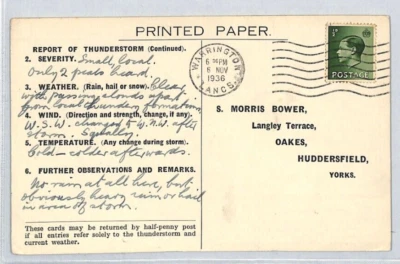 PRINTED PAPER.
REPORT OF THUNDERSTORM (Continued).
2. SEVERITY. Small local.
Only 2 peals heard.
3. WEATHER. (Rain, hail or snow). Clear
with passing clouds apart
from local thunder formation
4. WIND. (Direction and strength, change, if any).
W.S.W. changed to W.N.W. after
storm. Squally.
5. TEMPERATURE. (Any change during storm).
Cold - colder afterwards.
6. FURTHER OBSERVATIONS AND REMARKS.
No rain at all here, but
obviously heavy rain or hail
in area of storm.
These cards may be returned by half-penny post
if all entries refer solely to the thunderstorm and
current weather.
WARRINGTON
6 PM
6 NOV
1936
LANCS.
POSTAGE
S. MORRIS BOWER,
Langley Terrace,
OAKES,
HUDDERSFIELD,
YORKS.